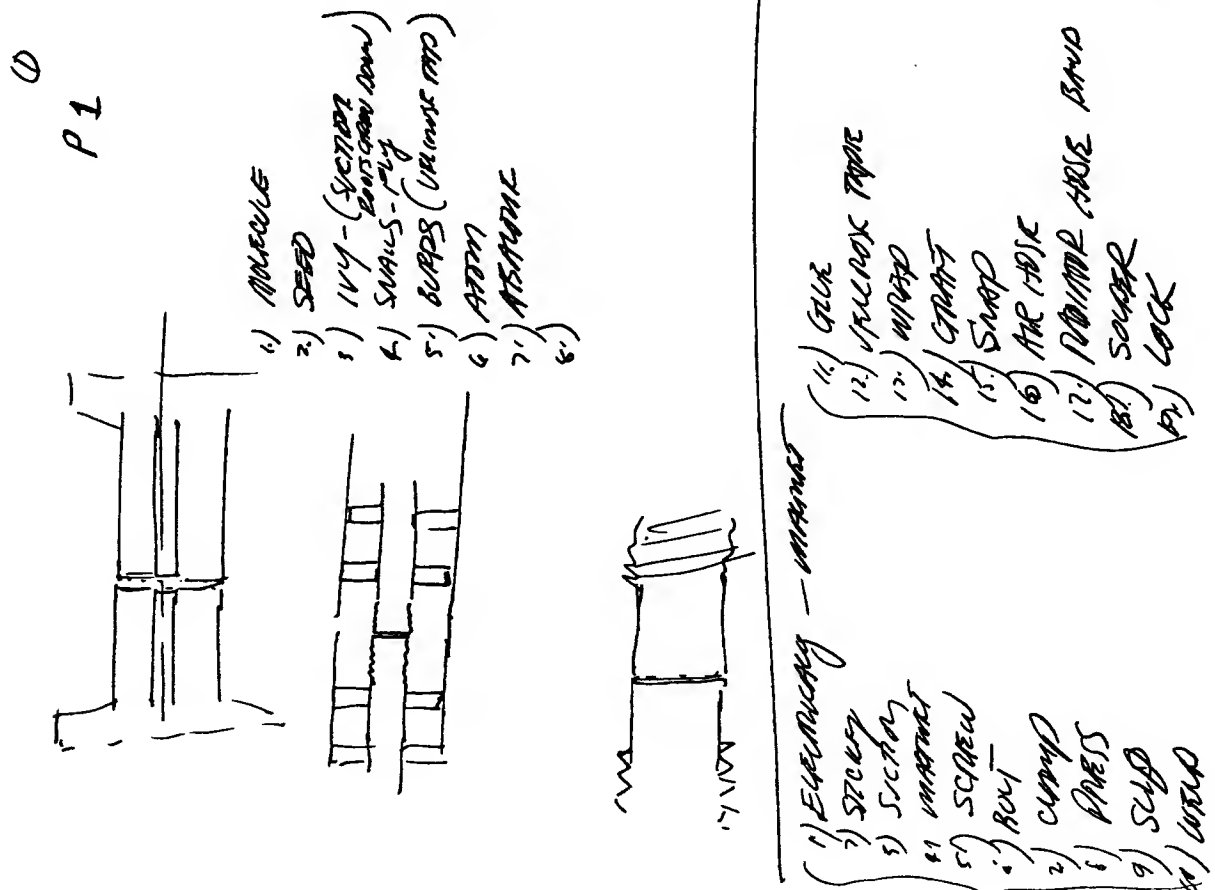 ①
P 1
1.) MOLECULE
2.) SEED
3.) IVY - (SUCTION
ROOTS GROW DOWN)
4.) SNAILS - FLY
5.) BURRS (VELCROSE TAPE)
6.) ATOM
7.)
8.)
1) ELECTRICALLY — MAGNET
2) STICKY
3) SUCTION
4) MAGNET
5) SCREW
6.) BOLT
7) CLAMP
8) PRESS
9) SLIP
10) WELD
11.) GLUE
12.) VELCROSE TAPE
13.) WRAP
14.) GRAFT
15.) SNAP
16) AIR HOSE
17.) RADIATOR HOSE BAND
18.) SOLDER
19.) LOCK